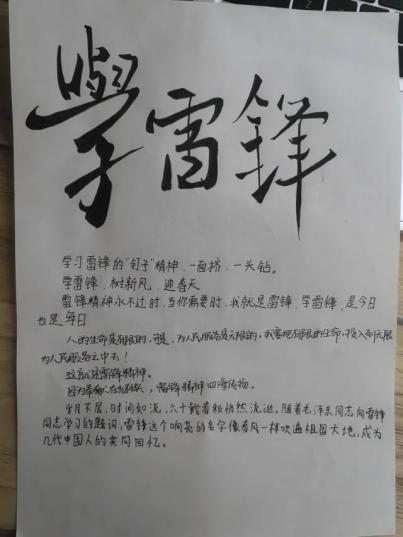 學雷锋
学习雷锋的“钉子”精神,一面挤,一头钻。
学雷锋,树新风,迎春天
雷锋精神永不过时,当你需要时,我就是雷锋,学雷锋,是今日
也是每日
人的生命是有限的,可是,为人民服务是无限的,我要把有限的生命,投入到无限
为人民服务之中去!
这就是雷锋精神。
因为奉献在继续,雷锋精神四海依物。
岁月不居,时间如流,六十载春秋悄然流逝。随着毛泽东同志向雷锋
同志学习的题词,雷锋这个响亮的名字像春风一样吹遍祖国大地,成为
几代中国人的共同回忆。